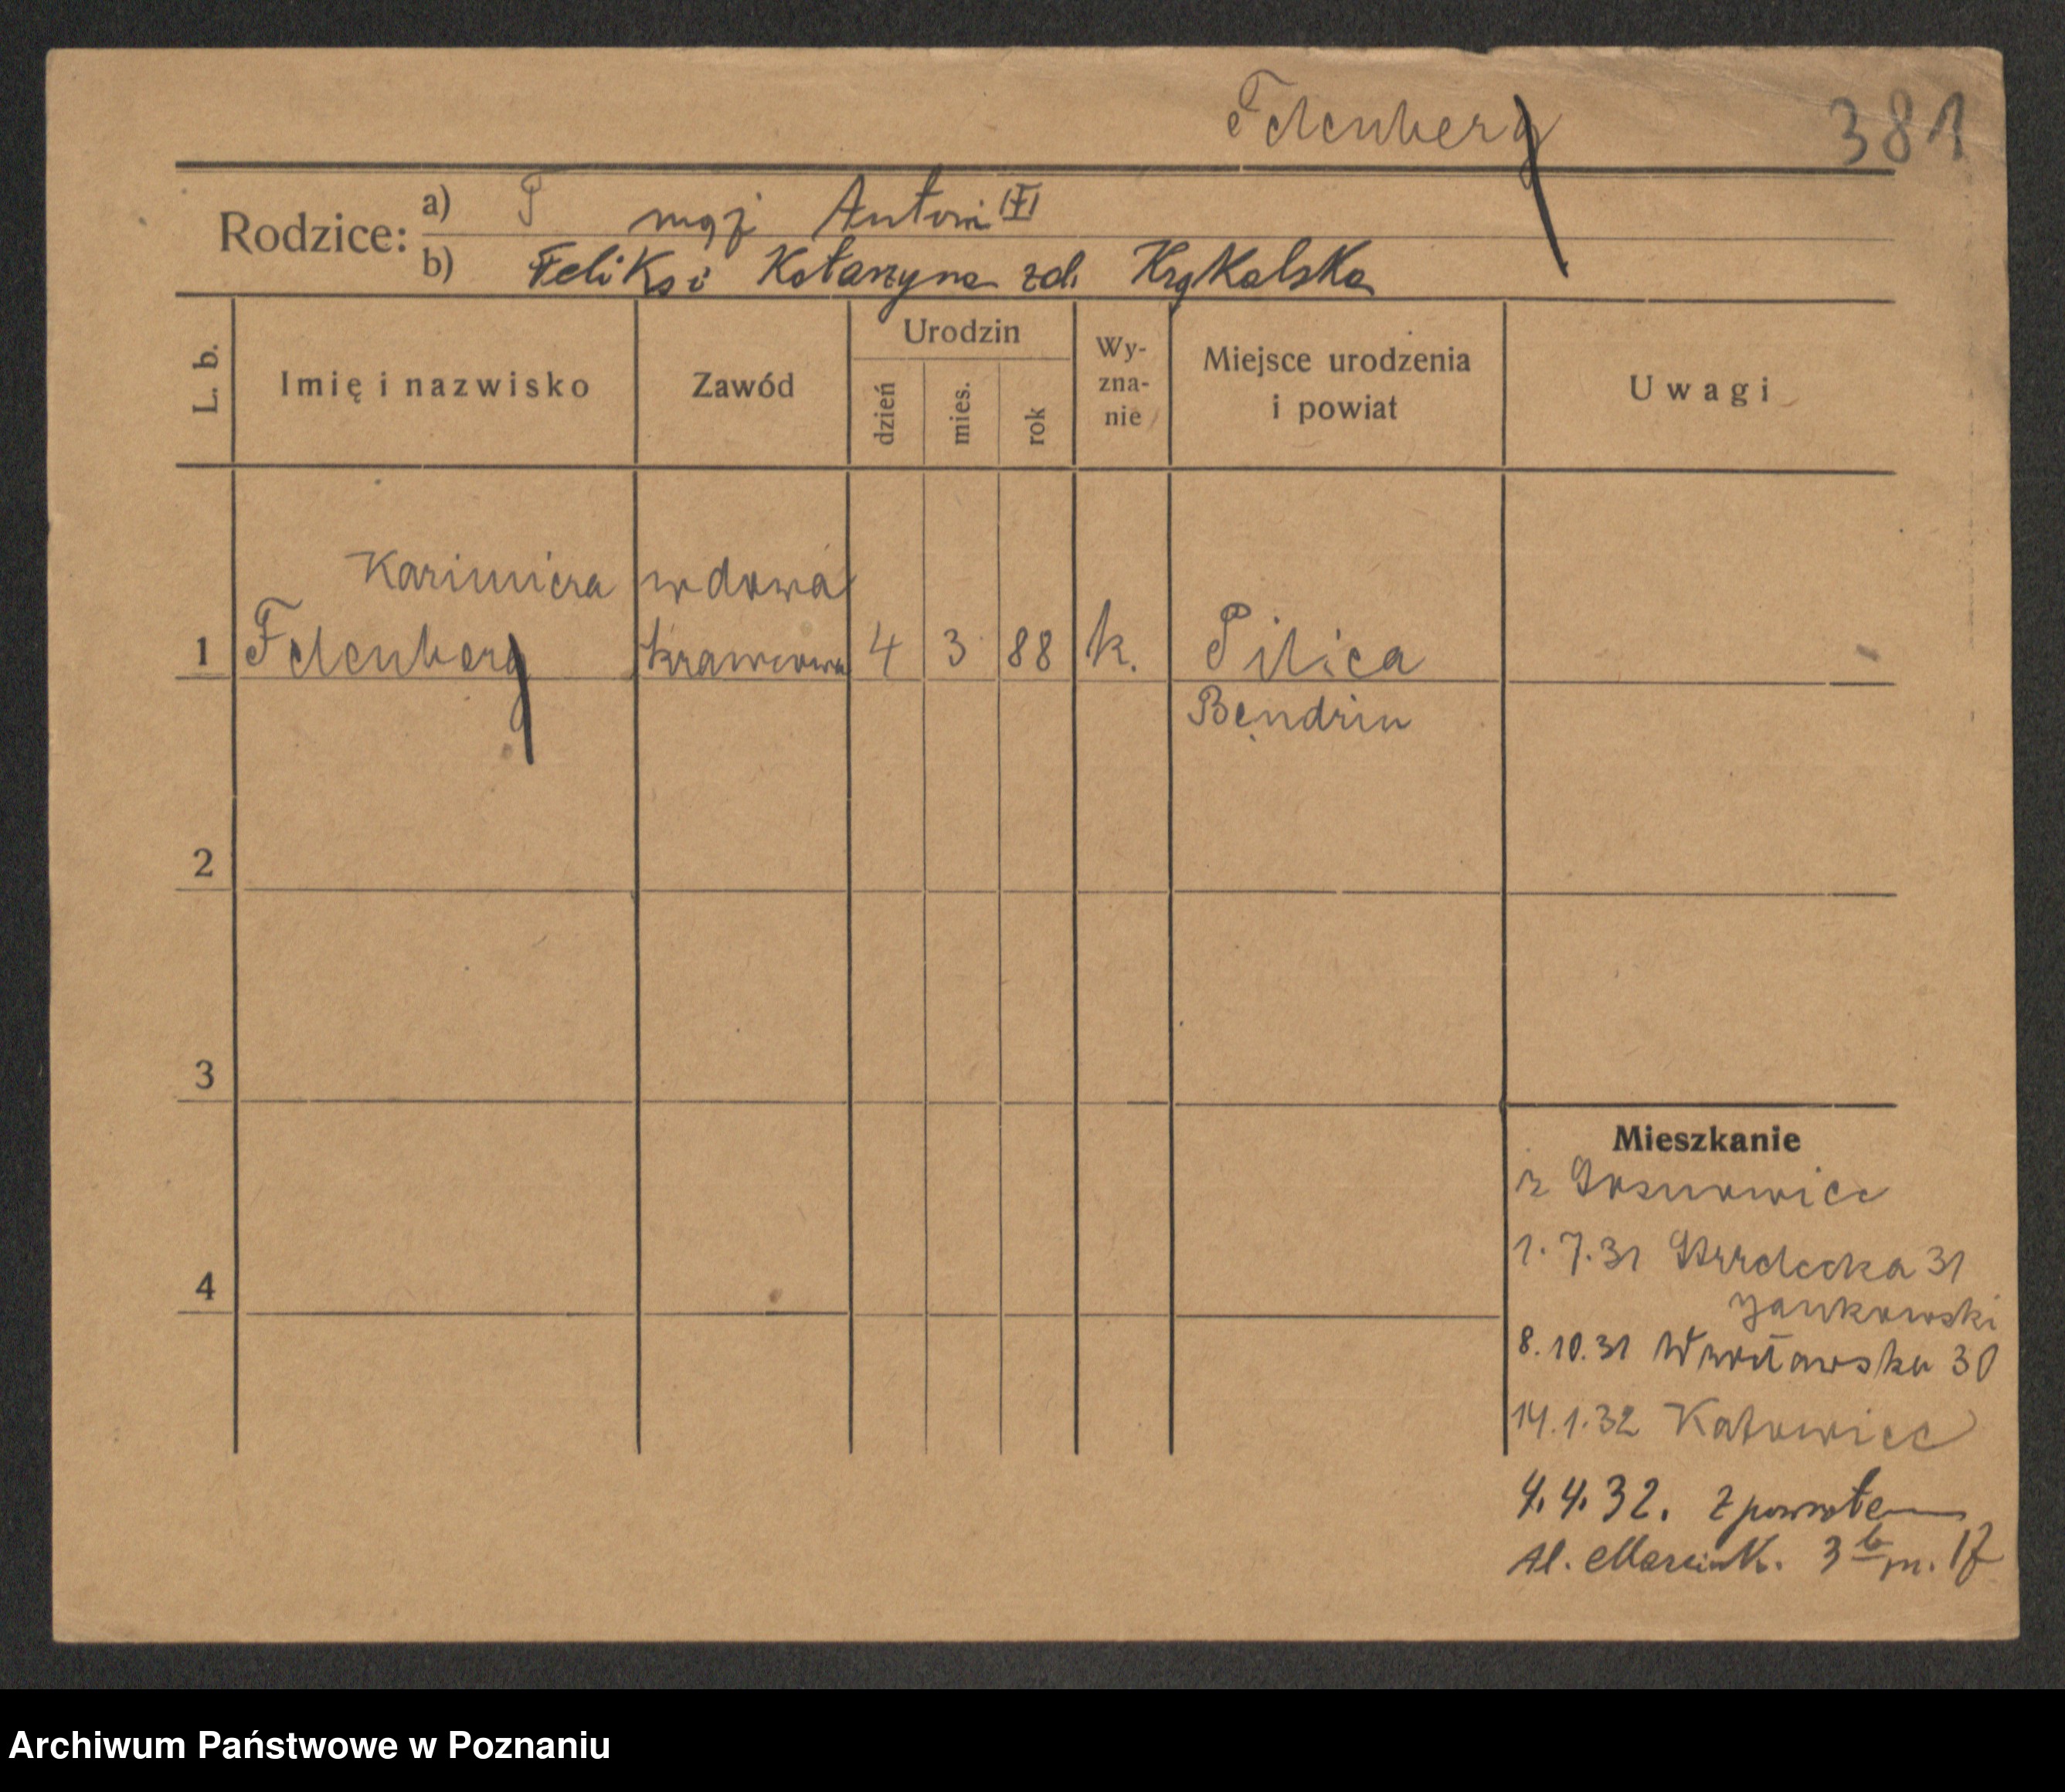 Felenberg 381
Rodzice: a) P mąż Antoni
b) Feliks i Katarzyna zd. Krąkalska
L. b. Imię i nazwisko Zawód Urodzin dzień mies. rok Wy-zna-nie Miejsce urodzenia i powiat Uwagi
Kazimiera wdowa
1 Felenberg krawcowa 4 3 88 k. Pilica
Bendzin
2
3
Mieszkanie
z Sosnowice
1.7.31 31
4
Jankowski
8.10.31 Wrocławska 30
14.1.32 Katowice
4.4.32. z powrotem
Al. Marcink. 3 b m. 17
Archiwum Państwowe w Poznaniu